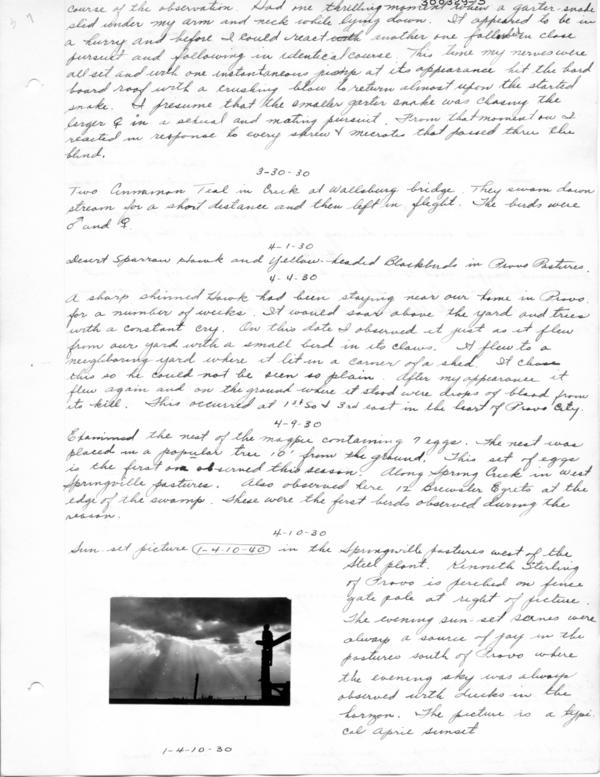 course of the observation. Had one thrilling moment when a garter-snake
slid under my arm and neck while lying down. It appeared to be in
a hurry and before I could react another one followed in close
pursuit and following in identical course. This time my nerves were
all set and with one instantaneous jump at its appearance hit the hard
board roof with a crushing blow to return almost upon the startled
snake. I presume that the smaller garter snake was chasing the
larger ♀ in a sexual and mating pursuit. From that moment on I
reacted in response to every shrew & microtis that passed thru the
blind.
3-30-30
Two Cinnamon Teal in Creek at Wallsburg bridge. They swam down
stream for a short distance and then left in flight. The birds were
♂ and ♀.
4-1-30
Desert Sparrow Hawk and Yellow-headed Blackbirds in Provo Pastures.
4-4-30
A sharp shinned Hawk had been staying near our home in Provo
for a number of weeks. It would soar above the yard and trees
with a constant cry. On this date I observed it just as it flew
from our yard with a small bird in its claws. It flew to a
neighboring yard where it lit in a corner of a shed. It chose
this so he could not be seen so plain. After my appearance it
flew again and on the ground where it stood were drops of blood from
its kill. This occurred at 1st So & 3rd east in the heart of Provo City.
4-9-30
Examined the nest of the magpie containing 7 eggs. The nest was
placed in a popular tree 10' from the ground. This set of eggs
is the first observed this season. Along Spring Creek in West
Springville pastures. Also observed here 12 Brewster Egrets at the
edge of the swamp. These were the first birds observed during the
season.
4-10-30
Sun set picture 1-4-10-40 in the Springville pastures west of the
Steel plant. Kenneth Sterling
of Provo is perched on fence
gate pole at right of picture.
The evening sun-set scenes were
always a source of joy in the
pastures south of Provo where
the evening sky was always
observed with ducks in the
horizon. The picture is a typi-
cal April sunset
1-4-10-30